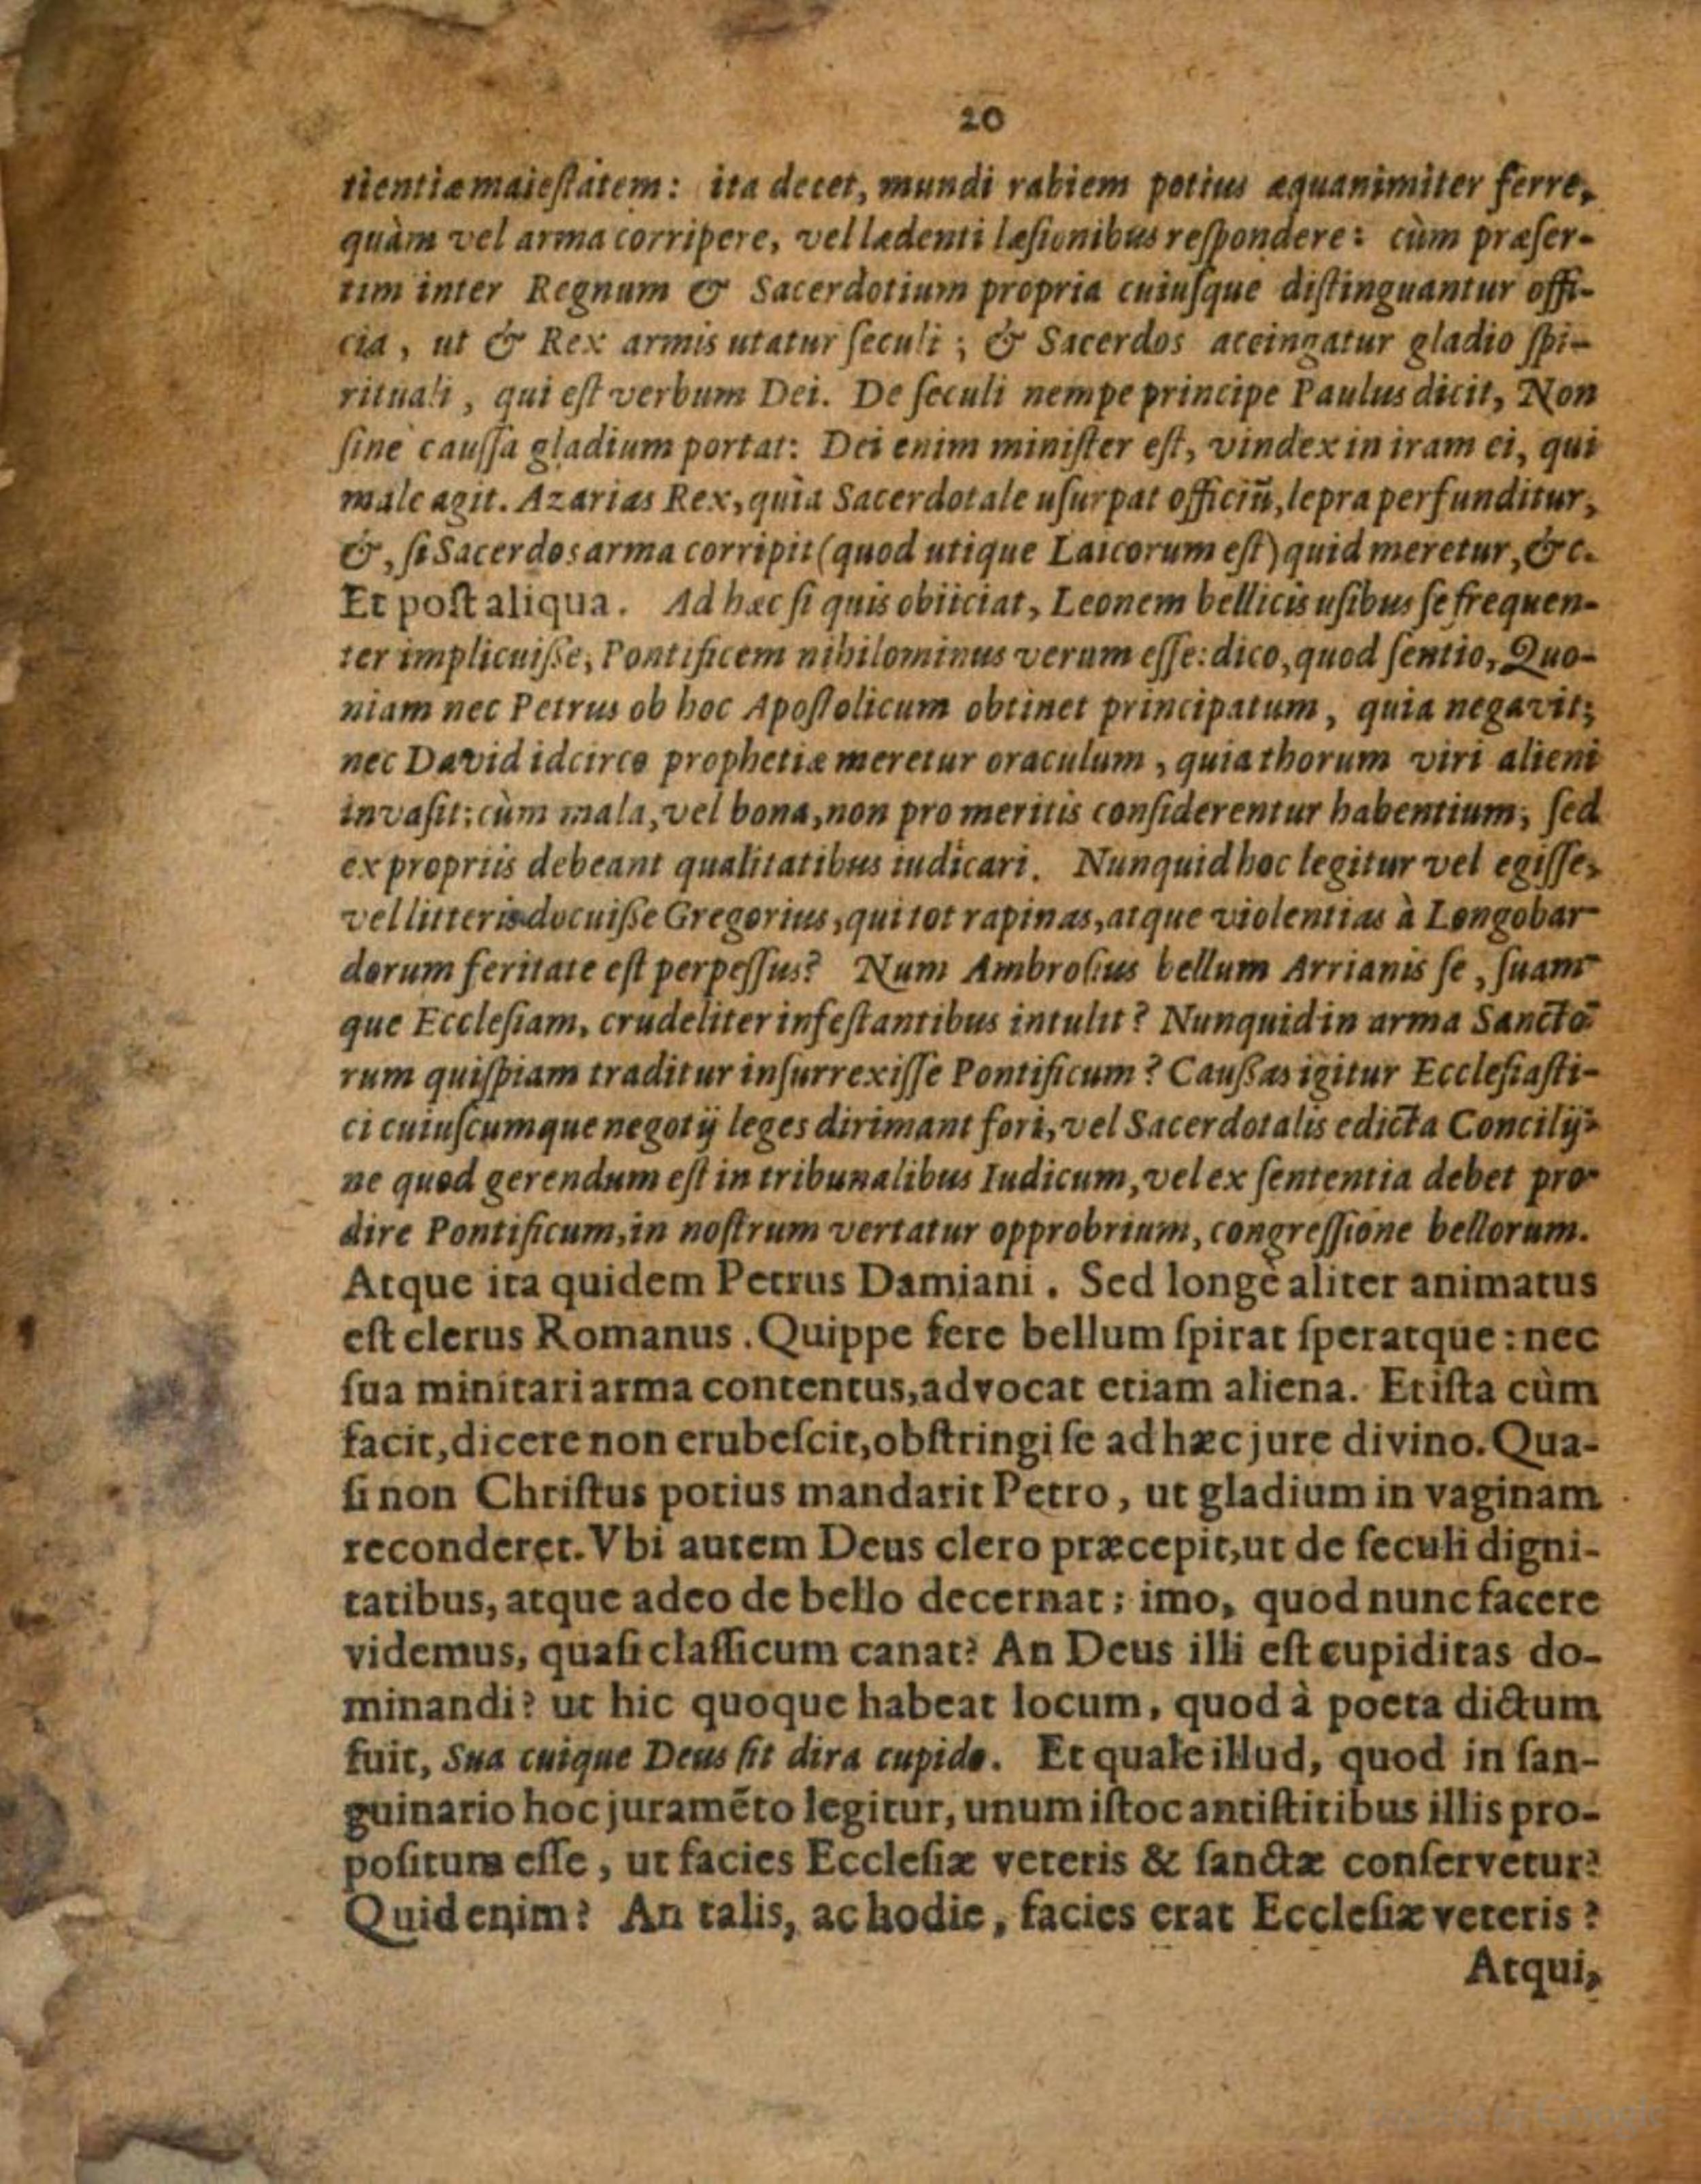 20
tientiæ maieſtatem: ita decet, mundi rabiem potius æquanimiter ferre,
quàm vel arma corripere, vel lædenti læſionibus reſpondere: cùm præſer-
tim inter Regnum & Sacerdotium propria cuiuſque diſtinguantur offi-
cia, ut & Rex armis utatur ſeculi; & Sacerdos accingatur gladio ſpi-
rituali, qui eſt verbum Dei. De ſeculi nempe principe Paulus dicit, Non
ſine cauſſa gladium portat: Dei enim miniſter eſt, vindex in iram ei, qui
male agit. Azarias Rex, quia Sacerdotale uſurpat officiũ, lepra perfunditur,
&, ſi Sacerdos arma corripit (quod utique Laicorum eſt) quid meretur, &c.
Et poſt aliqua. Ad hæc ſi quis obiiciat, Leonem bellicis uſibus ſe frequen-
ter implicuiſſe, Pontificem nihilominus verum eſſe: dico, quod ſentio, Quo-
niam nec Petrus ob hoc Apoſtolicum obtinet principatum, quia negavit;
nec David idcirco prophetiæ meretur oraculum, quia thorum viri alieni
invaſit; cùm mala, vel bona, non pro meritis conſiderentur habentium; ſed
ex propriis debeant qualitatibus iudicari. Nunquid hoc legitur vel egiſſe,
vel litteris docuiſſe Gregorius, qui tot rapinas, atque violentias à Longobar-
dorum feritate eſt perpeſſus? Num Ambroſius bellum Arrianis ſe, ſuam-
que Eccleſiam, crudeliter infeſtantibus intulit? Nunquid in arma Sancto-
rum quiſpiam traditur inſurrexiſſe Pontificum? Cauſſas igitur Eccleſiaſti-
ci cuiuſcumque negotij leges dirimant fori, vel Sacerdotalis edicta Concilij,
ne quod gerendum eſt in tribunalibus Iudicum, vel ex ſententia debet pro-
dire Pontificum, in noſtrum vertatur opprobrium, congreſſione bellorum.
Atque ita quidem Petrus Damiani. Sed longè aliter animatus
eſt clerus Romanus. Quippe fere bellum ſpirat ſperatque: nec
ſua minitari arma contentus, advocat etiam aliena. Et iſta cùm
facit, dicere non erubeſcit, obſtringi ſe ad hæc jure divino. Qua-
ſi non Chriſtus potius mandarit Petro, ut gladium in vaginam
reconderet. Vbi autem Deus clero præcepit, ut de ſeculi digni-
tatibus, atque adeo de bello decernat; imo, quod nunc facere
videmus, quaſi claſſicum canat? An Deus illi eſt cupiditas do-
minandi? ut hic quoque habeat locum, quod à poeta dictum
fuit, Sua cuique Deus fit dira cupido. Et quale illud, quod in ſan-
guinario hoc juramẽto legitur, unum iſtoc antiſtitibus illis pro-
poſitum eſſe, ut facies Eccleſiæ veteris & ſanctæ conſervetur?
Quid enim? An talis, ac hodie, facies erat Eccleſiæ veteris?
Atqui,